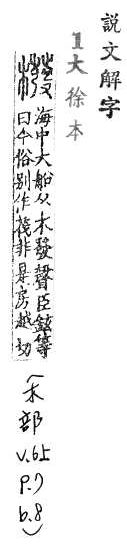 説文解字
1大徐本
橃 海中大船从木發聲臣鉉等
曰今俗別作筏非是房越切
(木部 v.6上 p.7 b.8)